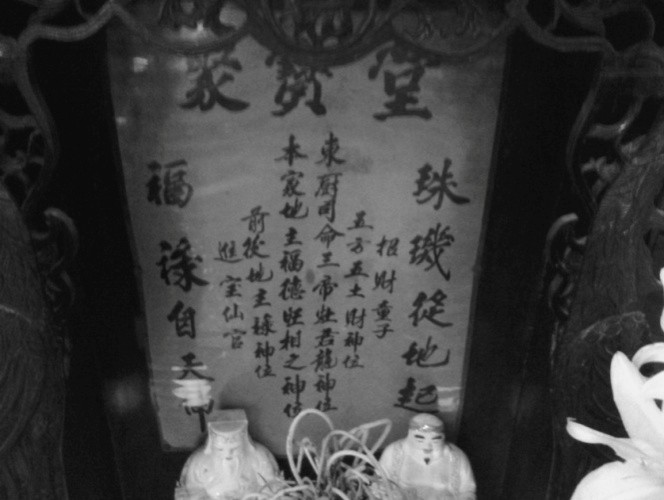 聚寶堂
珠璣從地起
招財童子
五方五土財神位
東厨司命三帝灶君龍神位
本家地主福德旺相之神位
前後地主祿神位
進宝仙官
福祿自天